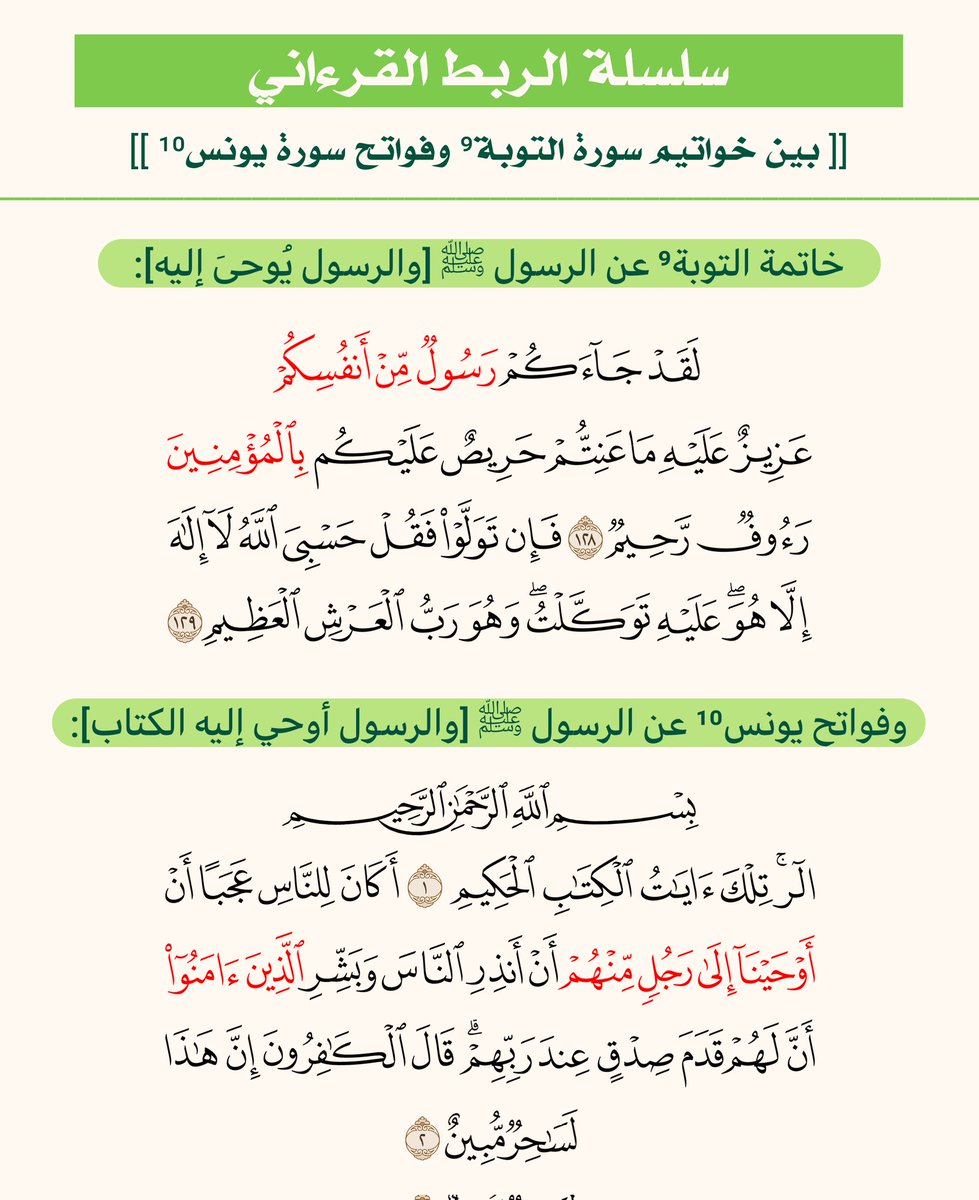 سلسلة الربط القرءاني
[[ بين خواتيم سورة التوبة⁹ وفواتح سورة يونس¹⁰ ]]
خاتمة التوبة⁹ عن الرسول ﷺ [والرسول يُوحىَ إليه]:
لَقَدۡ جَآءَكُمۡ رَسُولٞ مِّنۡ أَنفُسِكُمۡ
عَزِيزٌ عَلَيۡهِ مَا عَنِتُّمۡ حَرِيصٌ عَلَيۡكُم بِٱلۡمُؤۡمِنِينَ
رَءُوفٞ رَّحِيمٞ ١٢٨ فَإِن تَوَلَّوۡاْ فَقُلۡ حَسۡبِيَ ٱللَّهُ لَآ إِلَٰهَ
إِلَّا هُوَۖ عَلَيۡهِ تَوَكَّلۡتُۖ وَهُوَ رَبُّ ٱلۡعَرۡشِ ٱلۡعَظِيمِ ١٢٩
وفواتح يونس¹⁰ عن الرسول ﷺ [والرسول أوحي إليه الكتاب]:
بِسۡمِ ٱللَّهِ ٱلرَّحۡمَٰنِ ٱلرَّحِيمِ
الٓرۚ تِلۡكَ ءَايَٰتُ ٱلۡكِتَٰبِ ٱلۡحَكِيمِ ١ أَكَانَ لِلنَّاسِ عَجَبًا أَنۡ
أَوۡحَيۡنَآ إِلَىٰ رَجُلٖ مِّنۡهُمۡ أَنۡ أَنذِرِ ٱلنَّاسَ وَبَشِّرِ ٱلَّذِينَ ءَامَنُوٓاْ
أَنَّ لَهُمۡ قَدَمَ صِدۡقٍ عِندَ رَبِّهِمۡۗ قَالَ ٱلۡكَٰفِرُونَ إِنَّ هَٰذَا
لَسَٰحِرٞ مُّبِينٌ ٢